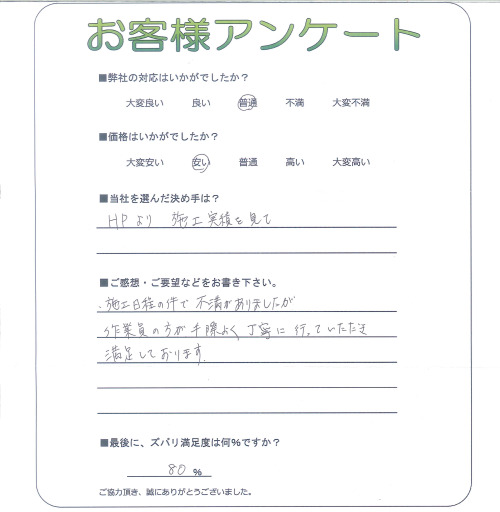 お客様アンケート
■弊社の対応はいかがでしたか?
大変良い 良い 普通 不満 大変不満
■価格はいかがでしたか?
大変安い 安い 普通 高い 大変高い
■当社を選んだ決め手は?
HPより 施工実績を見て
■ご感想・ご要望などをお書き下さい。
・施工日程の件で不満がありましたが
作業員の方が手際よく丁寧に行っていただき
満足しております。
■最後に、ズバリ満足度は何%ですか?
80 %
ご協力頂き、誠にありがとうございました。